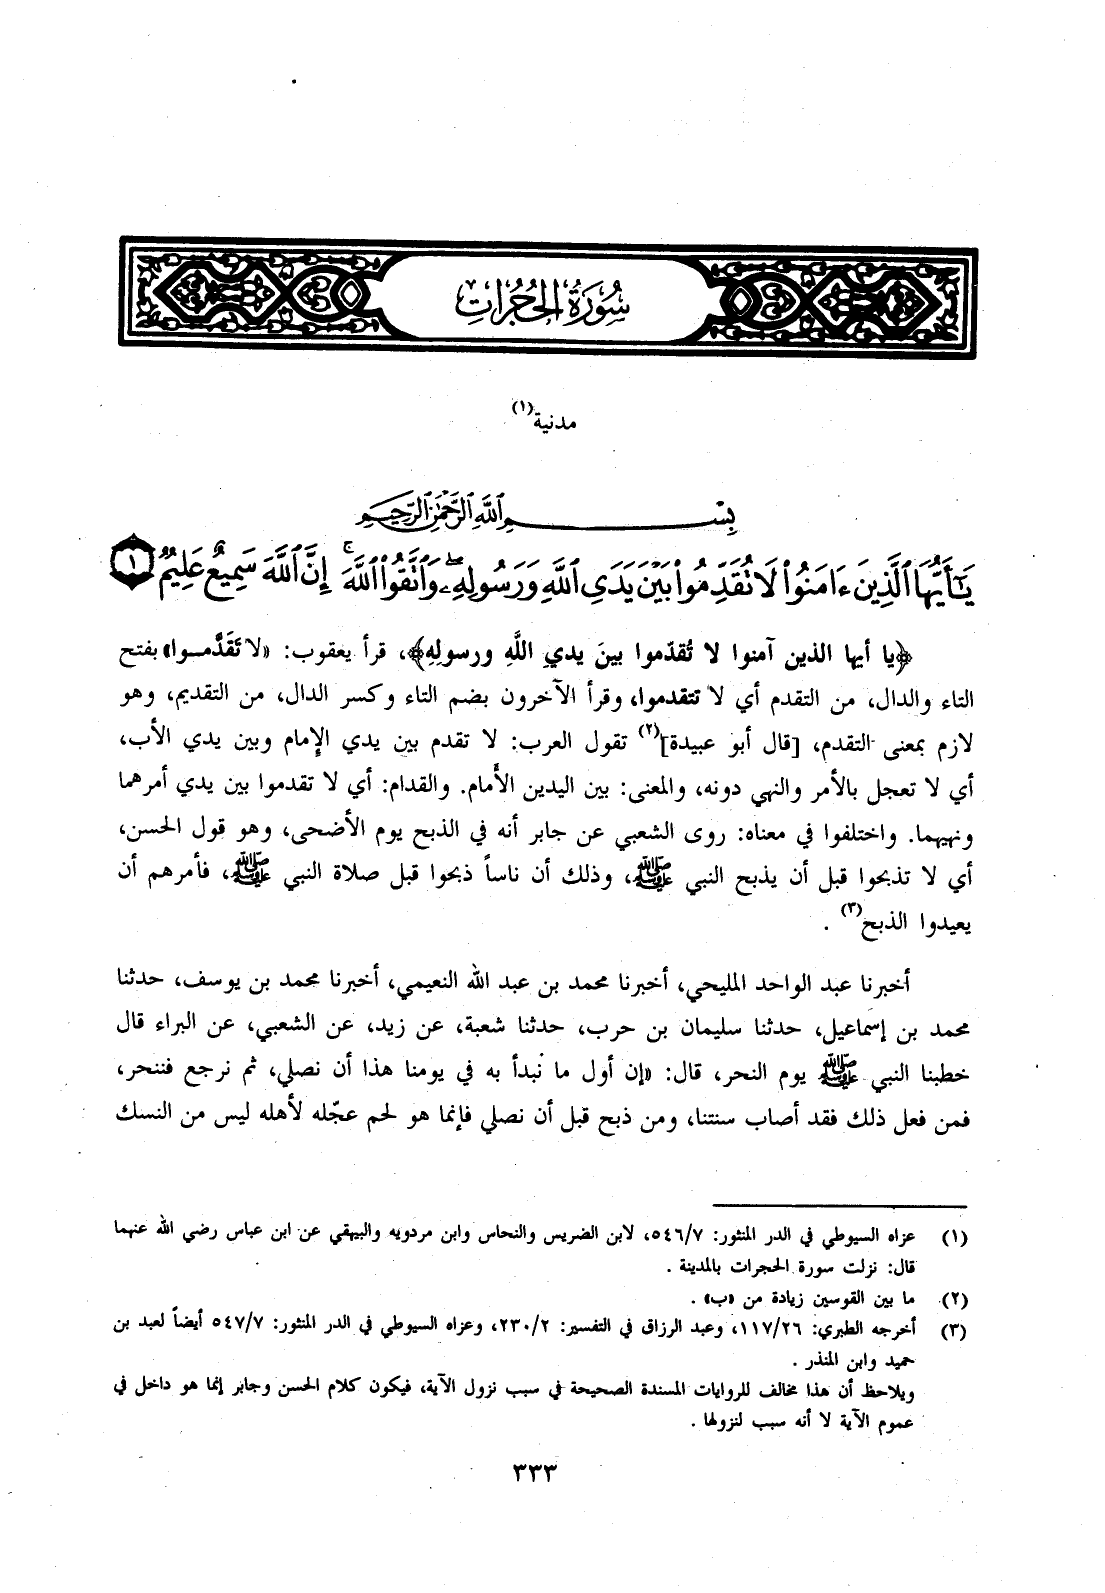 سُورَةُ الحُجُرَاتِ
مدنية(١)
بِسْمِ ٱللَّهِ ٱلرَّحْمَٰنِ ٱلرَّحِيمِ
يَٰٓأَيُّهَا ٱلَّذِينَ ءَامَنُوا۟ لَا تُقَدِّمُوا۟ بَيْنَ يَدَىِ ٱللَّهِ وَرَسُولِهِۦ ۖ وَٱتَّقُوا۟ ٱللَّهَ ۚ إِنَّ ٱللَّهَ سَمِيعٌ عَلِيمٌ ١
﴿يا أيها الذين آمنوا لا تُقدّموا بينَ يدي اللَّهِ ورسولِهِ﴾، قرأ يعقوب: «لا تَقَدَّمـوا» بفتح
التاء والدال، من التقدم أي لا تتقدموا، وقرأ الآخرون بضم التاء وكسر الدال، من التقديم، وهو
لازم بمعنى التقدم، [قال أبو عبيدة](٢) تقول العرب: لا تقدم بين يدي الإمام وبين يدي الأب،
أي لا تعجل بالأمر والنهي دونه، والمعنى: بين اليدين الأمام. والقدام: أي لا تقدموا بين يدي أمرهما
ونهيهما. واختلفوا في معناه: روى الشعبي عن جابر أنه في الذبح يوم الأضحى، وهو قول الحسن،
أي لا تذبحوا قبل أن يذبح النبي ﷺ، وذلك أن ناساً ذبحوا قبل صلاة النبي ﷺ، فأمرهم أن
يعيدوا الذبح(٣) .
أخبرنا عبد الواحد المليحي، أخبرنا محمد بن عبد الله النعيمي، أخبرنا محمد بن يوسف، حدثنا
محمد بن إسماعيل، حدثنا سليمان بن حرب، حدثنا شعبة، عن زيد، عن الشعبي، عن البراء قال
خطبنا النبي ﷺ يوم النحر، قال: «إن أول ما نبدأ به في يومنا هذا أن نصلي، ثم نرجع فننحر،
فمن فعل ذلك فقد أصاب سنتنا، ومن ذبح قبل أن نصلي فإنما هو لحم عجّله لأهله ليس من النسك
(١) عزاه السيوطي في الدر المنثور: ٥٤٦/٧، لابن الضريس والنحاس وابن مردويه والبيهقي عن ابن عباس رضي الله عنهما
قال: نزلت سورة الحجرات بالمدينة .
(٢) ما بين القوسين زيادة من «ب» .
(٣) أخرجه الطبري: ١١٧/٢٦، وعبد الرزاق في التفسير: ٢٣٠/٢، وعزاه السيوطي في الدر المنثور: ٥٤٧/٧ أيضاً لعبد بن
حميد وابن المنذر .
ويلاحظ أن هذا مخالف للروايات المسندة الصحيحة في سبب نزول الآية، فيكون كلام الحسن وجابر إنما هو داخل في
عموم الآية لا أنه سبب لنزولها .
٣٣٣